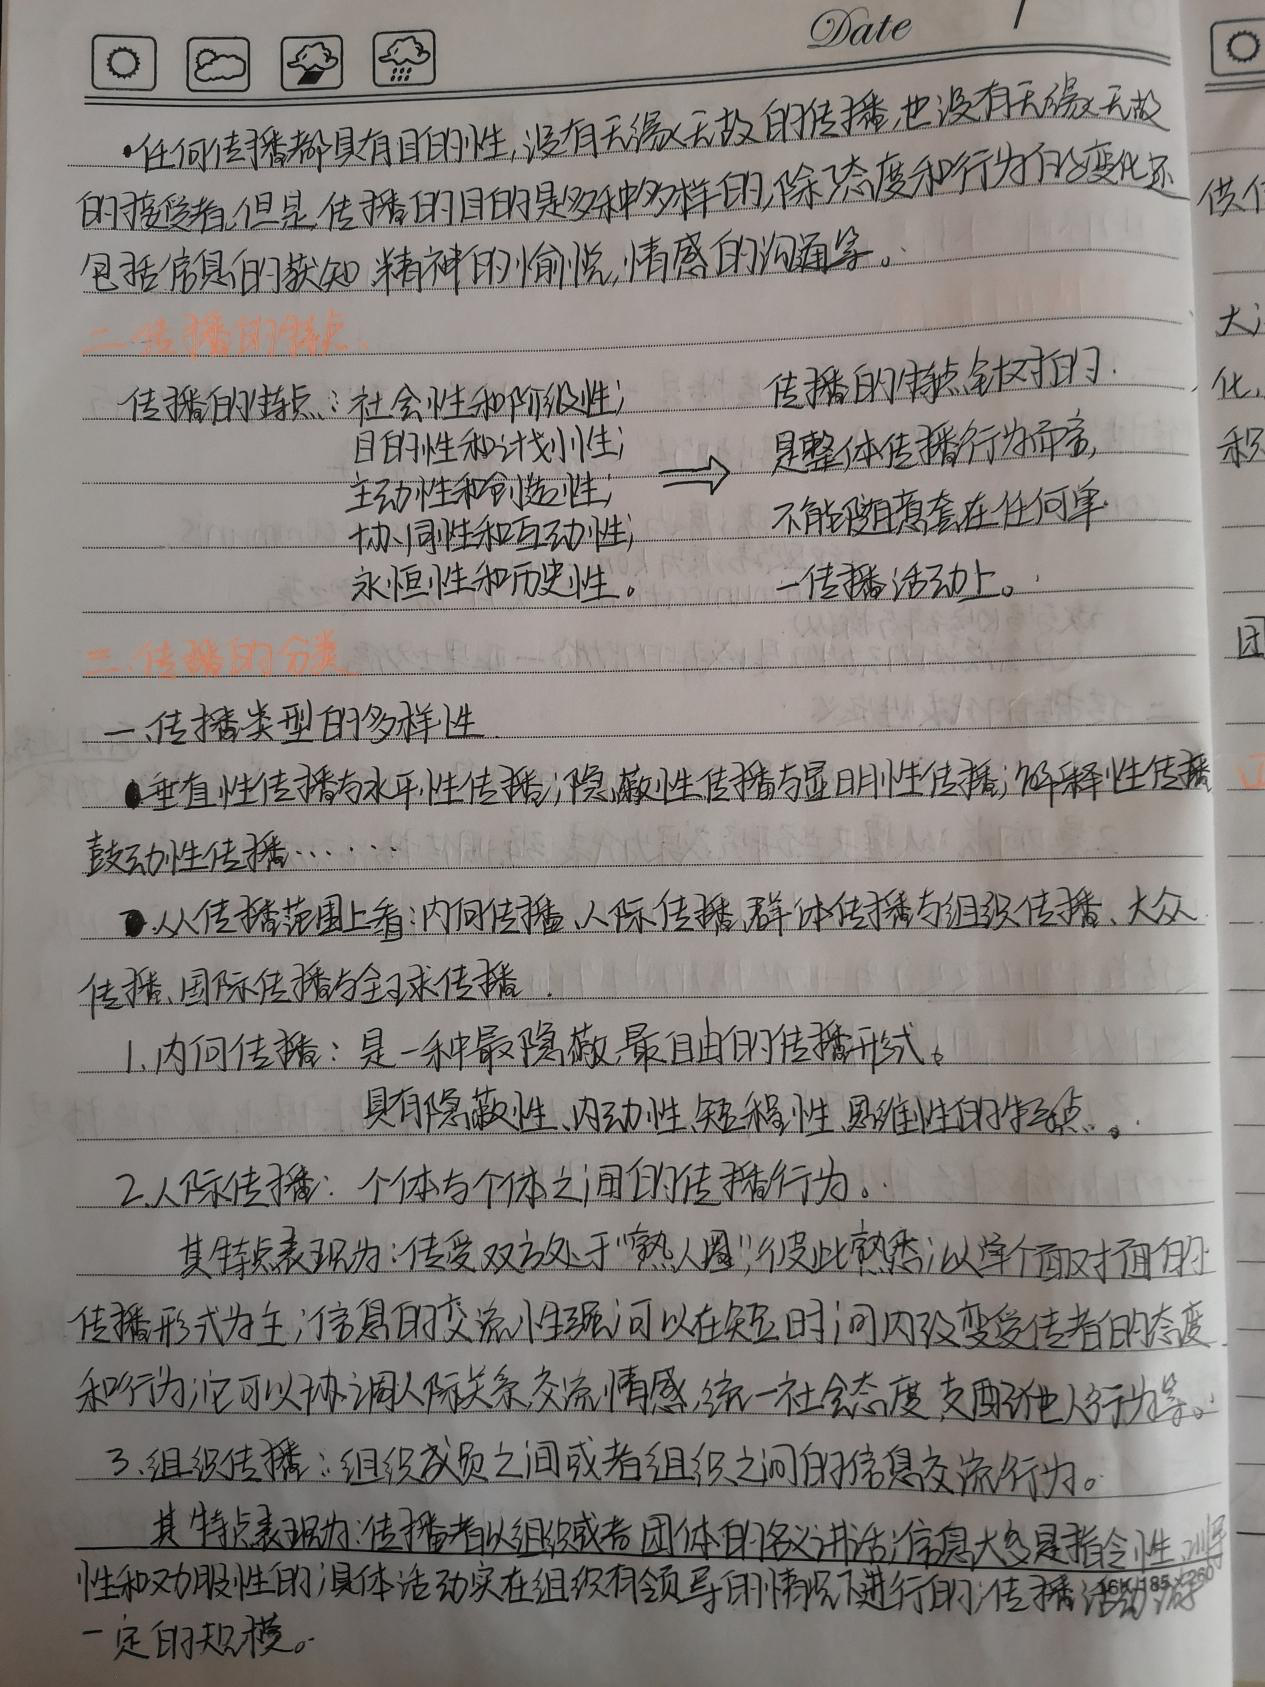 Date
·任何传播都具有目的性,没有无缘无故的传播,也没有无缘无故
的接受者,但是,传播的目的是多种多样的,除了态度和行为的变化还
包括信息的获知 精神的愉悦,情感的沟通等。
二.传播的特点.
传播的特点:社会性和阶级性;
目的性和计划性;
主动性和创造性;
协同性和互动性;
永恒性和历史性。
传播的特点针对的.
是整体传播行为而言,
不能随意套在任何单
一传播活动上。
三.传播的分类
一.传播类型的多样性
●垂直性传播与水平性传播;隐蔽性传播与显明性传播;解释性传播
鼓动性传播······
●从传播范围上看:内向传播、人际传播、群体传播与组织传播、大众
传播、国际传播与全球传播.
1.内向传播:是一种最隐蔽,最自由的传播形式。
具有隐蔽性、内动性、短程性、思维性的特点。
2.人际传播:个体与个体之间的传播行为。
其特点表现为:传受双方处于"熟人圈",彼此熟悉;以单个面对面的
传播形式为主;信息的交流性强;可以在短时间内改变受传者的态度
和行为;它可以协调人际关系,交流情感,统一社会态度,支配他人行为等。
3.组织传播:组织成员之间或者组织之间的信息交流行为。
其特点表现为:传播者以组织或者团体的名义讲话;信息大多是指令性、训导
性和劝服性的;具体活动实在组织有领导的情况下进行的;传播活动
一定的规模。
16K 185×260
供
大
化,
积
团